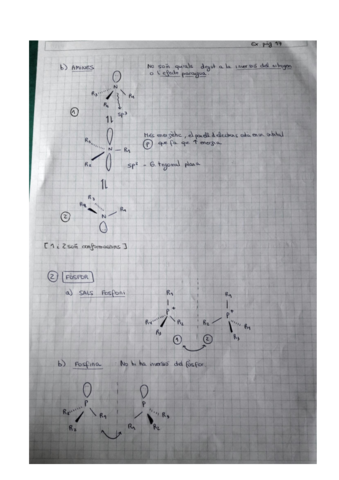 b) AMINES
No són quirals degut a la inversió del nitrogen
o l'efecte paraigua.
N
R3 R1
R2
sp3
①
Més energètic, el parell d'electrons està en un orbital
Ⓟ que fa que ↑ energia
R3 N R1
R2
sp2 - G. trigonal plana
R2
R3 N R1
②
[1 i 2 són conformacions]
② FÒSFOR
a) SALS FOSFONI
R4 R4
P+ P+
R1 R2 R2 R1
R3 R3
① ②
b) Fosfina No hi ha inversió del fòsfor.
P P
R1 R2
R3 R3